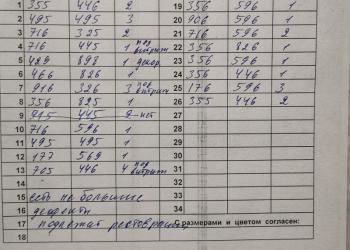 1 355 446 2 19 356 596 1
2 495 495 3 20 906 596 1
3 716 325 2 21 716 596 2
4 716 445 1 под витраж 22 356 826 1
5 429 898 1 декор. 23 356 596 1
6 466 826 1 24 356 446 1
7 916 326 3 под витраж 25 176 596 3
8 356 825 1 26 355 446 2
9 915 445 2 нет 27
10 716 596 1 28
11 495 495 1 29
12 177 569 1 30
13 765 446 4 под витраж 31
14 32
15 есть не большие 33
16 дефекты 34
17 подлежат реставрации С размерами и цветом согласен:
18